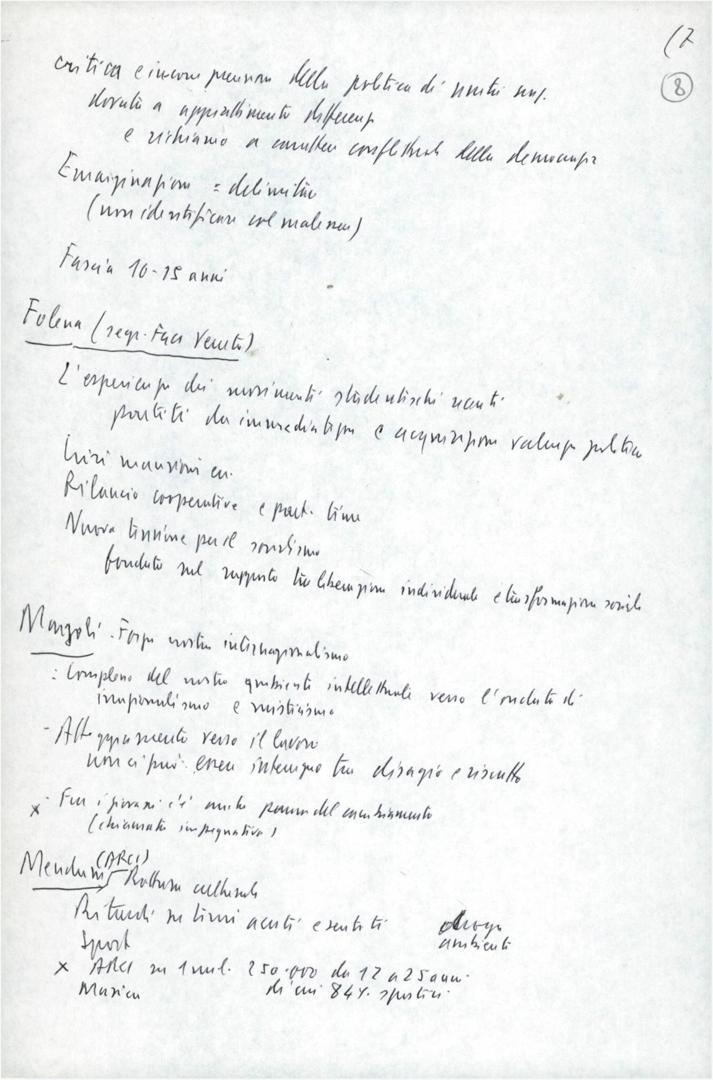 (7
8
critica e incomprensione della politica di nostri
dovuta a appiattimento differenze
e richiamo a carattere conflittuale della democrazia
Emarginazione = delimitare
(non identificare col malessere)
Fascia 10-15 anni
Folena (segr. Fgci Veneto)
L'esperienza dei movimenti studenteschi recenti
partiti da immediatezza e acquisizione valenza politica
Crisi mansioni
Rilancio cooperative e part. time
Nuova tensione per il socialismo
fondata sul rapporto tra liberazione individuale e trasformazione sociale
Margoli - Forza nostro internazionalismo
: Complesso del nostro ambiente intellettuale verso l'ondata di
irrazionalismo e misticismo
- Atteggiamento verso il lavoro
non ci può essere intreccio tra disagio e riscatto
x - Fra i giovani c'è anche paura del cambiamento
(chiamata impegnativa)
Menduni (ARCI) Rottura culturale
Ritardi su temi acuti e sentiti droga
Sport ambienti
x ARCI su 1 mil. 250.000 da 12 a 25 anni
Musica di cui 84% sportivi